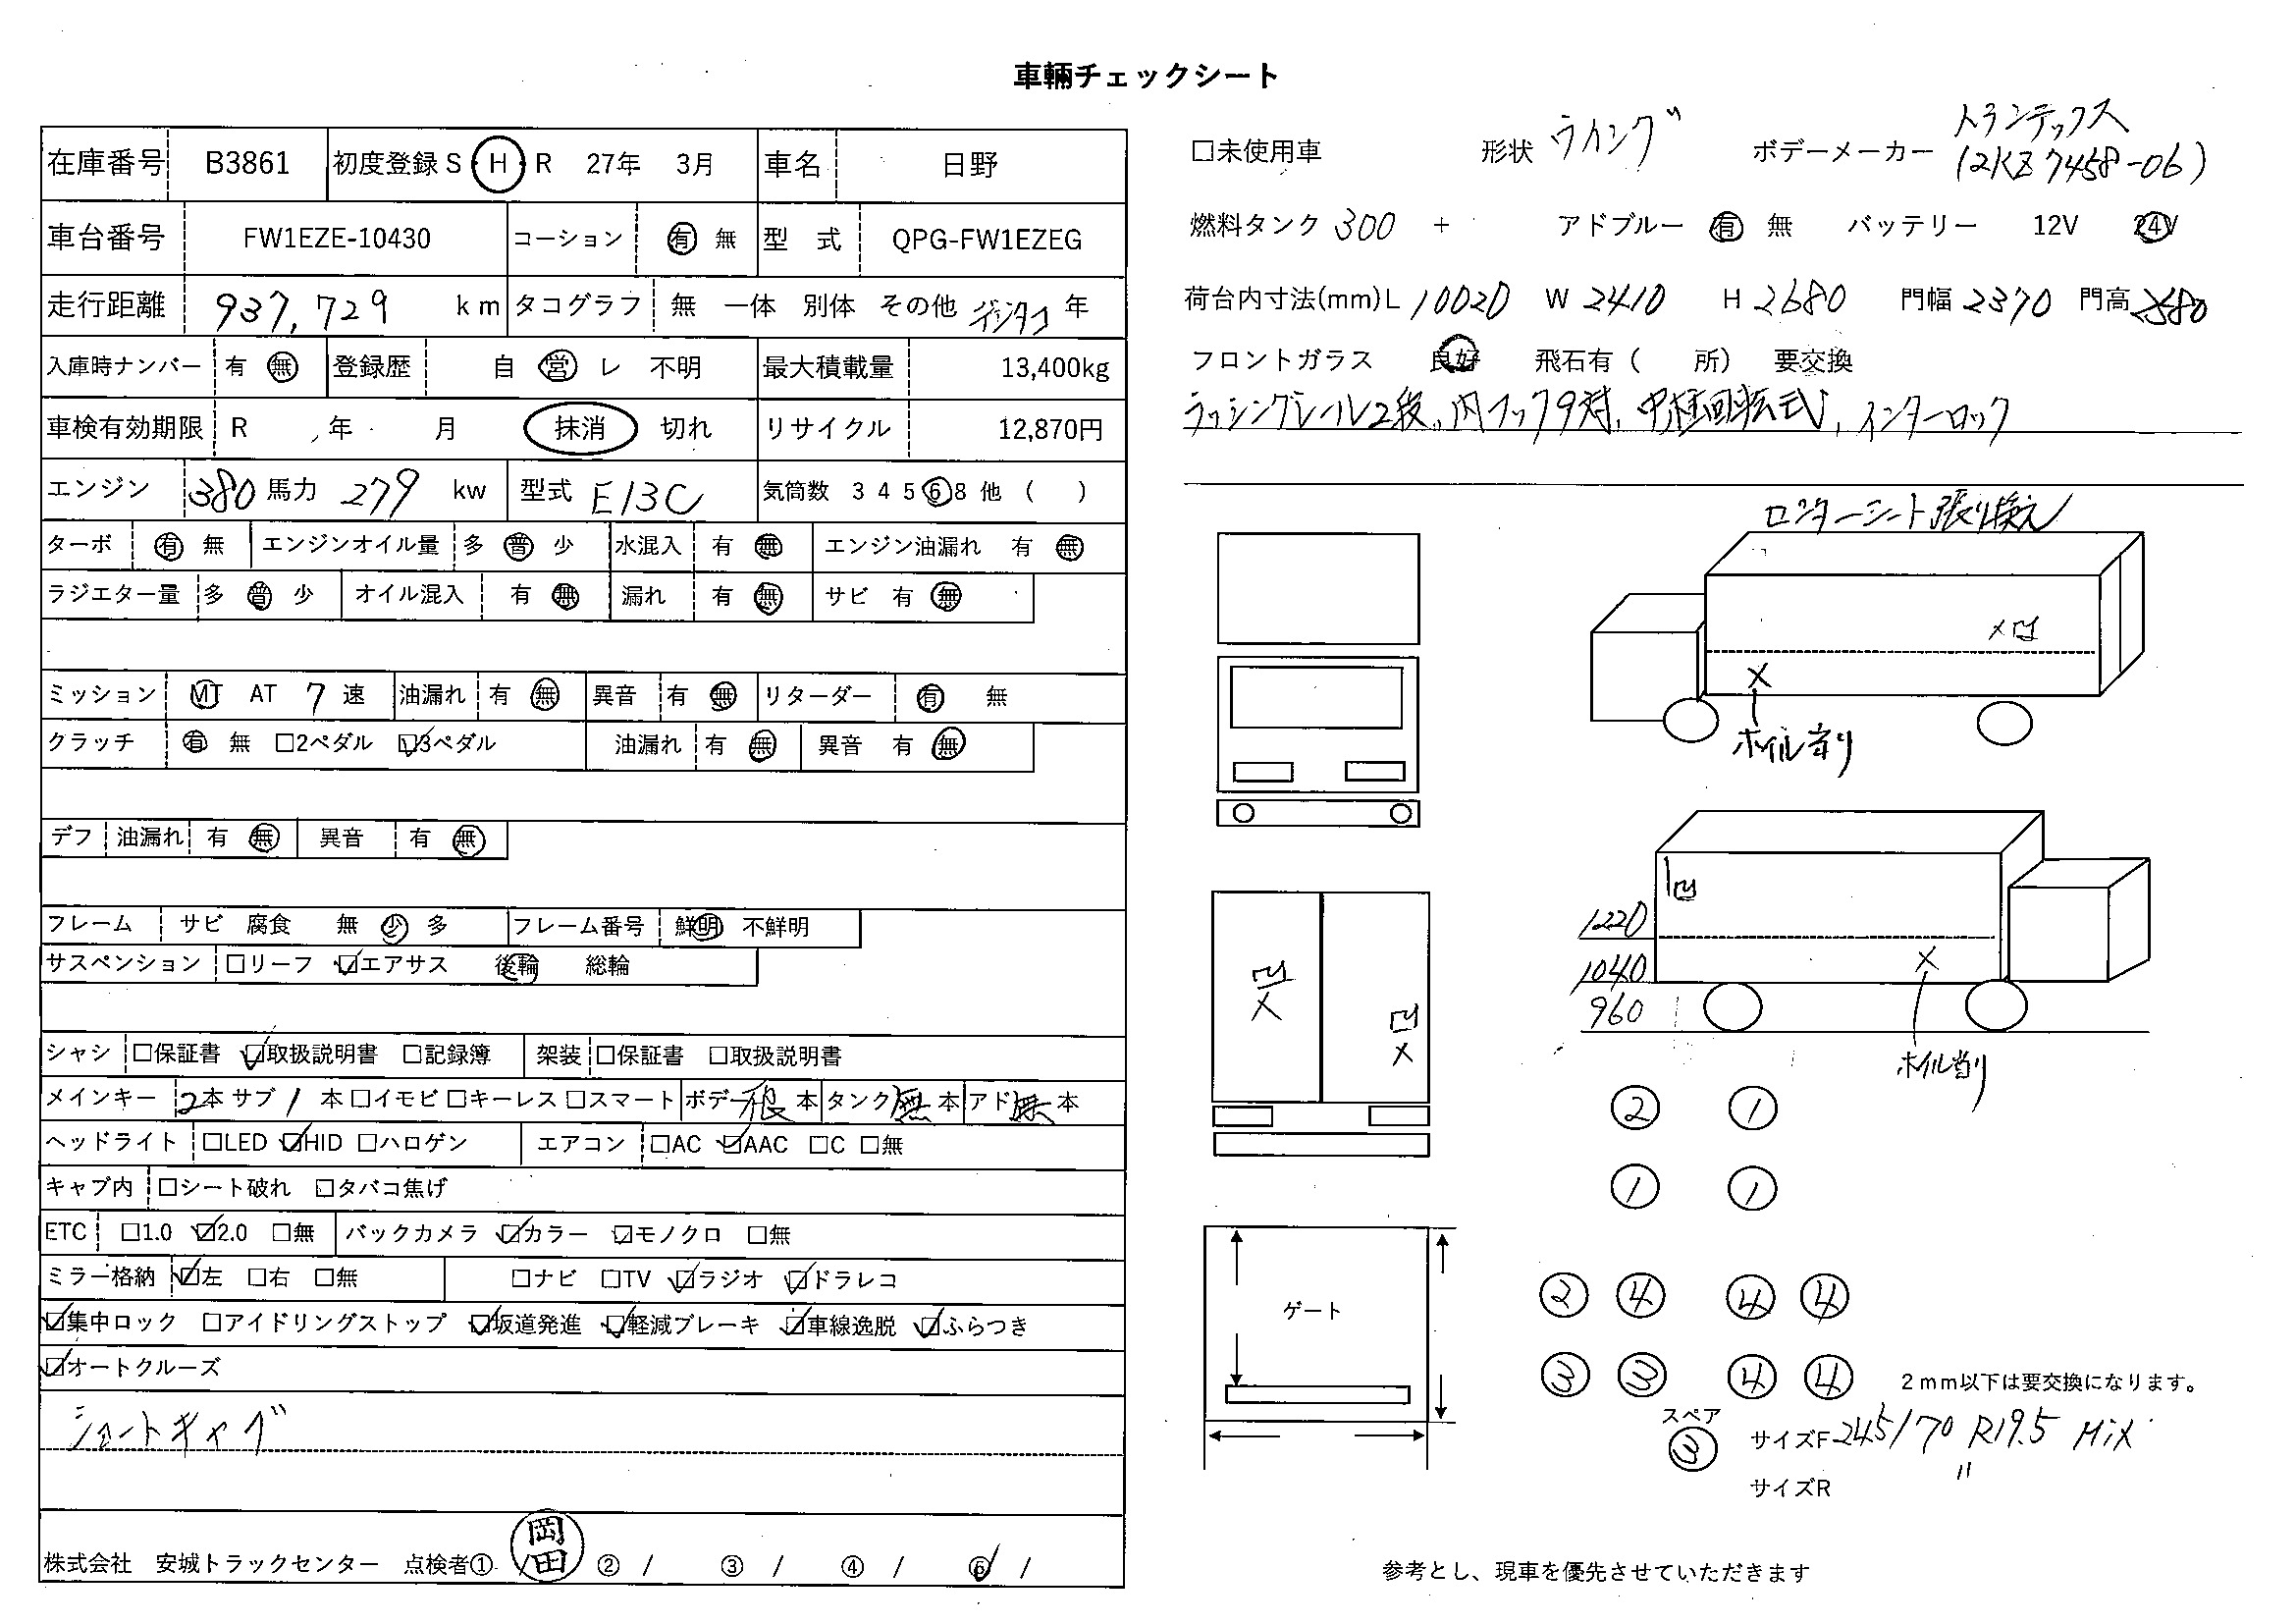 車輌チェックシート
在庫番号 B3861 初度登録 S H R 27年 3月 車名 日野
車台番号 FW1EZE-10430 コーション 有 無 型 式 QPG-FW1EZEG
走行距離 937,729 km タコグラフ 無 一体 別体 その他 デジタコ 年
入庫時ナンバー 有 無 登録歴 自 営 レ 不明 最大積載量 13,400kg
車検有効期限 R 年 月 抹消 切れ リサイクル 12,870円
エンジン 380 馬力 279 kw 型式 E13C 気筒数 3 4 5 6 8 他 ( )
ターボ 有 無 エンジンオイル量 多 普 少 水混入 有 無 エンジン油漏れ 有 無
ラジエター量 多 普 少 オイル混入 有 無 漏れ 有 無 サビ 有 無
ミッション MT AT 7 速 油漏れ 有 無 異音 有 無 リターダー 有 無
クラッチ 有 無 □2ペダル ☑3ペダル 油漏れ 有 無 異音 有 無
デフ 油漏れ 有 無 異音 有 無
フレーム サビ 腐食 無 少 多 フレーム番号 鮮明 不鮮明
サスペンション □リーフ ☑エアサス 後輪 総輪
シャシ □保証書 ☑取扱説明書 □記録簿 架装 □保証書 □取扱説明書
メインキー 2本 サブ 1 本 □イモビ □キーレス □スマート ボデー 本 タンク 無 本 アド 無 本
ヘッドライト □LED ☑HID □ハロゲン エアコン □AC ☑AAC □C □無
キャブ内 □シート破れ □タバコ焦げ
ETC □1.0 ☑2.0 □無 バックカメラ ☑カラー ☑モノクロ □無
ミラー格納 ☑左 □右 □無 □ナビ □TV ☑ラジオ ☑ドラレコ
☑集中ロック □アイドリングストップ ☑坂道発進 ☑軽減ブレーキ ☑車線逸脱 ☑ふらつき
☑オートクルーズ
ショートキャブ
株式会社 安城トラックセンター 点検者① / 岡田 ② / ③ / ④ / ⑥ /
□未使用車 形状 ウイング ボデーメーカー トランテックス
(2KZ7458-06)
燃料タンク 300 + アドブルー 有 無 バッテリー 12V 24V
荷台内寸法(mm) L 10020 W 2410 H 2680 門幅 2370 門高 2580
フロントガラス 良好 飛石有 ( 所) 要交換
ラッシングレール2段、内フック9対、中柱回転式、インターロック
センターシート張り換え
×凹
×
ホイル当り
凹
1220
1040
960
×
ホイル当り
凹
×
凹
×
② ①
① ①
② ④ ④ ④
③ ③ ④ ④
2mm以下は要交換になります。
スペア
③
サイズF 245/70 R19.5 Mix
サイズR 〃
ゲート
参考とし、現車を優先させていただきます